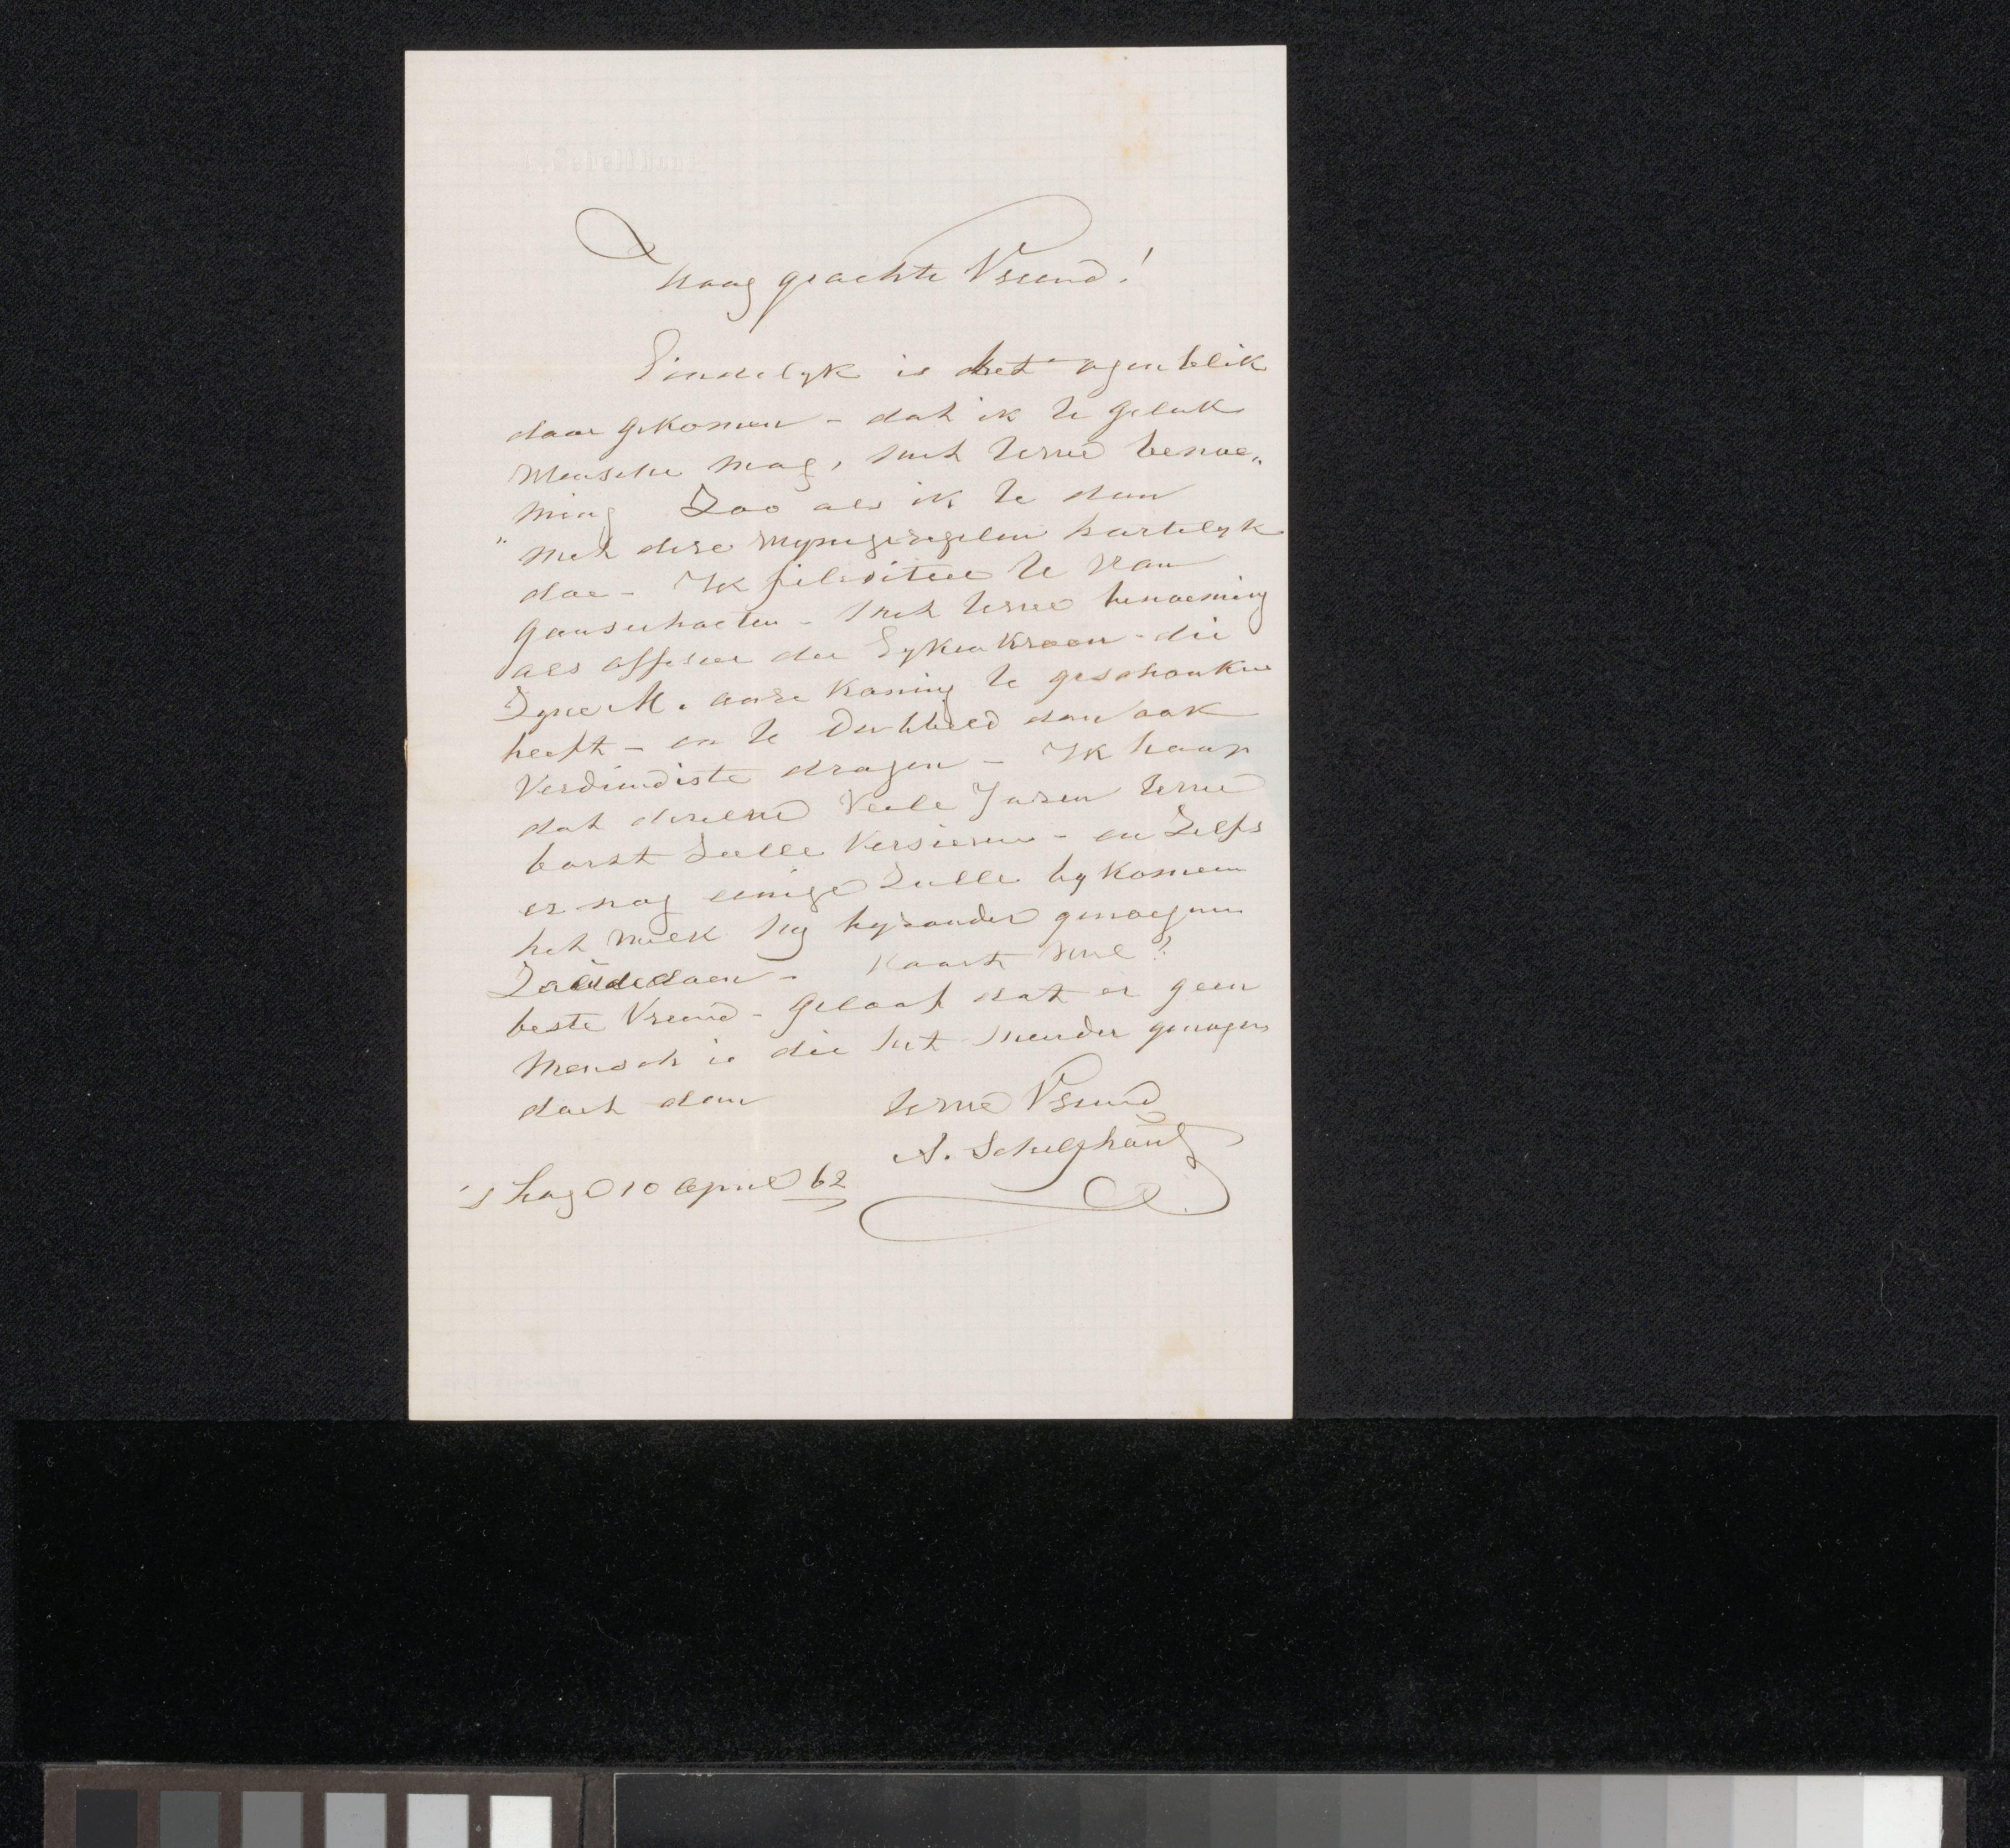 A. Schelfhout
Hoog geachte Vriend!
Eindelyk is het ogenblik
daar gekomen - dat ik U geluk
Mensche mag, met Uwe benoe„
„ming Zoo als ik U dan
met dese myne regelen hartelyk
doe - Ik filsiteer U van
ganscharten - met Uwe benoeming
als offisier der Eykenkroon - die
Zyne M. onse Koning U geschonken
heeft - en U dubbeld dan ook
Verdiendiste dragen - Ik hoop
dat deselve Veele Jaren Uwe
borst Zulle Versieren - en Zelfs
er nog eenige Zulle by Komen
het welk my bysonder genoegen
Zoude doen - Vaart wel?
beste Vriend - geloof dat er geen
Mensch is die het meerder genoegen
doet dan Uwe Vriend
A. Schelfhout
's Hage 10 April 62